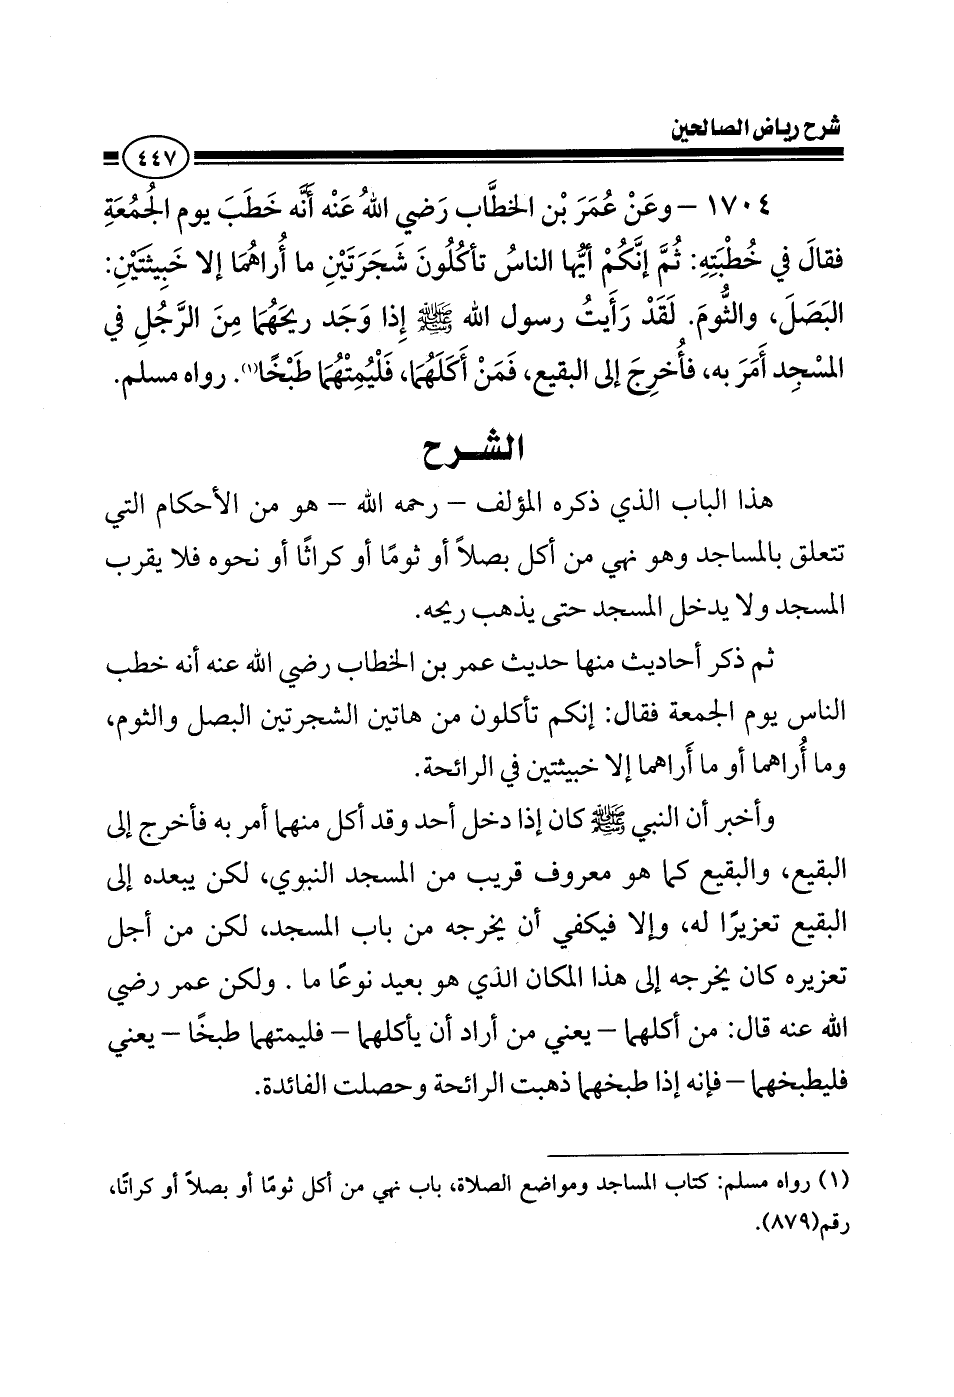 شرح رياض الصالحين
٤٤٧
١٧٠٤ – وعَنْ عُمَرَ بْنِ الخطَّاب رَضي اللهُ عَنْه أَنَّه خَطَبَ يوم الجُمُعَةِ
فقالَ في خُطْبَتِهِ: ثُمَّ إنَّكُمْ أيُّها الناسُ تأكُلُونَ شَجَرَتَيْنِ ما أُراهُمَا إلا خَبِيثَتَيْنِ:
البَصَلَ، والثُّومَ. لَقَدْ رَأَيتُ رسول الله ﷺ إِذا وَجَد ريحَهُمَا مِنَ الرَّجُلِ في
المسْجِد أَمَرَ به، فأُخرِجَ إلى البقيع، فَمَنْ أَكَلَهُمَا، فَلْيُمِتْهُمَا طَبْخًا(١). رواه مسلم.
الشرح
هذا الباب الذي ذكره المؤلف – رحمه الله – هو من الأحكام التي
تتعلق بالمساجد وهو نهي من أكل بصلاً أو ثومًا أو كراثًا أو نحوه فلا يقرب
المسجد ولا يدخل المسجد حتى يذهب ريحه.
ثم ذكر أحاديث منها حديث عمر بن الخطاب رضي الله عنه أنه خطب
الناس يوم الجمعة فقال: إنكم تأكلون من هاتين الشجرتين البصل والثوم،
وما أُراهما أو ما أَراهما إلا خبيثتين في الرائحة.
وأخبر أن النبي ﷺ كان إذا دخل أحد وقد أكل منهما أمر به فأخرج إلى
البقيع، والبقيع كما هو معروف قريب من المسجد النبوي، لكن يبعده إلى
البقيع تعزيرًا له، وإلا فيكفي أن يخرجه من باب المسجد، لكن من أجل
تعزيره كان يخرجه إلى هذا المكان الذي هو بعيد نوعًا ما . ولكن عمر رضي
الله عنه قال: من أكلهما – يعني من أراد أن يأكلهما – فليمتهما طبخًا – يعني
فليطبخهما – فإنه إذا طبخهما ذهبت الرائحة وحصلت الفائدة.
(١) رواه مسلم: كتاب المساجد ومواضع الصلاة، باب نهي من أكل ثومًا أو بصلاً أو كراثًا،
رقم(٨٧٩).